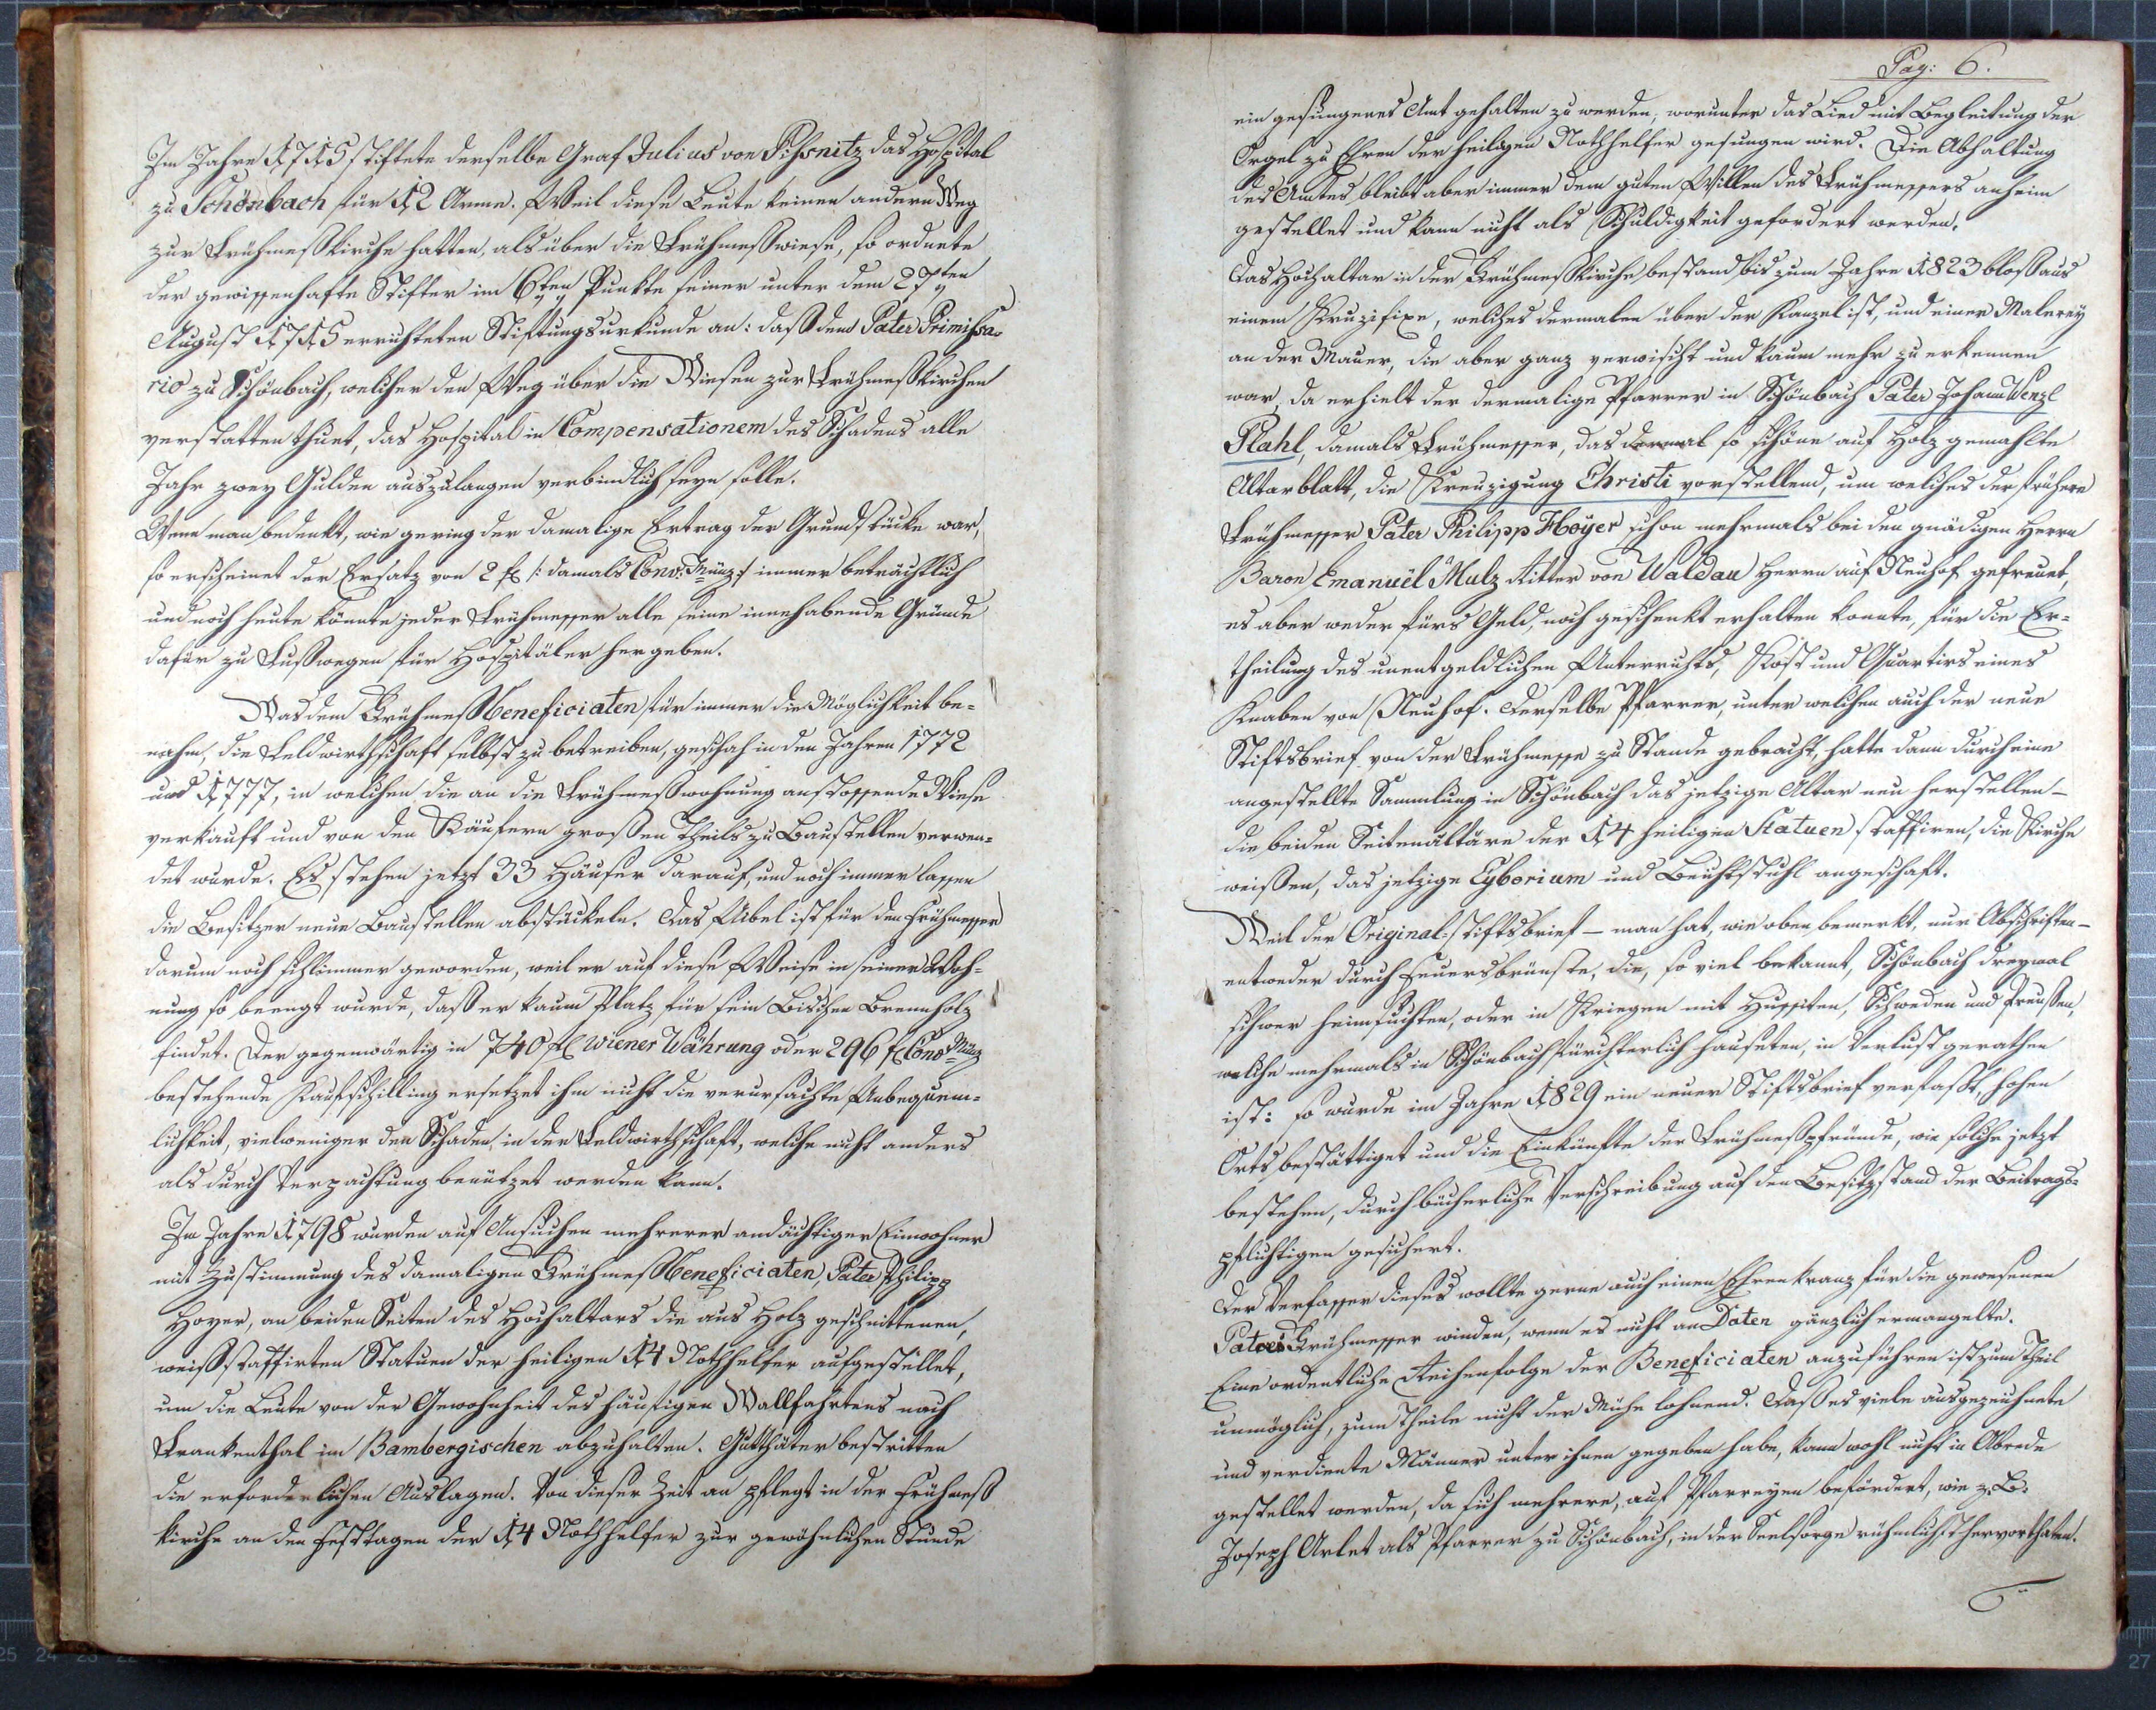 Im Jahre 1715 stiftete derselbe Graf Julius von Pihsnitz das Hospital
zu Schönbach für 12 Arme. Weil diese Leute keinen andern Weg
zur Frühmeßkirche hatten, als über die Frühmeßwiese, so ordnete
der gewissenhafte Stifter im 6ten Punkte seiner unter dem 27ten
August 1715 errichteten Stiftungsurkunde an: daß dem Pater Primissa-
rio zu Schönbach, welcher den Weg über die Wiesen zur Frühmeßkirchen
verstatten thuet, das Hospital in Compensationem des Schadens alle
Jahr zwey Gulden auszulangen verbindlich seyn solle.
Wenn man bedenkt, wie gering der damalige Ertrag der Grundstücke war,
so erscheinet der Ersatz von 2 fl /: damals Conv. Münz :/ immer beträchtlich
und noch heute könnte jeder Frühmesser alle seine innehabende Gründe
dafür zu Fußwegen für Hospitäler hergeben.
Was dem Frühmeßbeneficiaten für immer die Möglichkeit be-
nahm, die Feldwirthschaft selbst zu betreiben, geschah in den Jahren 1772
und 1777, in welchen die an die Frühmeßwohnung anstossende Wiese
verkauft und von den Käufern großen Theils zu Baustellen verwen-
det wurde. Es stehen jetzt 33 Häuser darauf, und noch immer lassen
die Besitzer neue Baustellen abstückeln. Das Uibel ist für den Frühmesser
darum noch schlimmer geworden, weil er auf diese Weise in seiner Woh-
nung so beengt wurde, daß er kaum Platz für sein Bischen Brennholz
findet. Der gegenwärtig in 740 fl Wiener Währung oder 296 fl Conv Münz
bestehende Kaufschilling ersetzet ihm nicht die verursachte Unbequem-
lichkeit, vielweniger den Schaden in der Feldwirthschaft, welche nicht anders
als durch Verpachtung benützet werden kann.
Im Jahre 1798 wurden auf Ansuchen mehrerer andächtiger Einwohner
mit Zustimmung des damaligen Frühmeßbeneficiaten, Pater Philipp
Hoyer, an beiden Seiten des Hochaltars die aus Holz geschnittenen,
weißstaffirten Statuen der heiligen 14 Nothhelfer aufgestellet,
um die Leute von der Gewohnheit des häufigen Wallfahrtens nach
Frankenthal im Bambergischen abzuhalten. Gutthäter bestritten
die erforderlichen Auslagen. Von dieser Zeit an pflegt in der Frühmeß
kirche an den Festtagen der 14 Nothhelfer zur gewöhnlichen Stunde
Pag: 6.
ein gesungenes Amt gehalten zu werden, worunter das Lied mit Begleitung der
Orgel zu Ehren der heiligen Nothhelfer gesungen wird. Die Abhaltung
des Amtes bleibt aber immer dem guten Willen des Frühmessers anheim
gestellet und kann nicht als Schuldigkeit gefordert werden.
Das Hochaltar in der Frühmeßkirche bestand bis zum Jahre 1823 bloß aus
einem Kruzifixe, welches dermalen über der Kanzel ist, und einer Malerey
an der Mauer, die aber ganz verwischt und kaum mehr zu erkennen
war, da erhielt der dermalige Pfarrer in Schönbach Pater Johann Wenzl
Plahl, damals Frühmesser, das dermal so schöne auf Holz gemahlte
Altarblatt, die Kreuzigung Christi vorstellend, um welches der frühere
Frühmesser Pater Philipp Hoÿer schon mehrmals bei den gnädigen Herrn
Baron Emanuël Mulz Ritter von Waldau Herrn auf Neuhof gefreuet,
es aber weder fürs Geld, noch geschenkt erhalten konnte, für die Er-
theilung des unentgeldlichen Unterrichts, Kost und Quartirs eines
Knaben von Neuhof. Derselbe Pfarrer, unter welchen auch der neue
Stiftsbrief von der Frühmesse zu Stande gebracht, hatte dann durch eine
angestellte Sammlung in Schönbach das jetzige Altar neu herstellen –
die beiden Seitenältäre der 14 heiligen Statuen staffiren, die Kirche
weißen, das jetzige Cyborium und Beichtstuhl angeschaft.
Weil der Original-Stiftsbrief – man hat, wie oben bemerkt, nur Abschriften –
entweder durch Feuersbrünste, die, so viel bekannt, Schönbach dreymal
schwer heimsuchten, oder in Kriegen mit Hussiten, Schweden und Preußen,
welche mehrmals in Schönbach fürchterlich hauseten, in Verlust gerathen
ist: so wurde im Jahre 1829 ein neuer Stiftsbrief verfaßt, hohen
Orts bestättiget und die Einkünfte der Frühmeßpfründe, wie solche jetzt
bestehen, durch bücherliche Verschreibung auf den Besitzstand der Beitrags-
pflichtigen gesichert.
Der Verfasser dieses wollte gerne auch einen Ehrenkranz für die gewesenen
Patres Frühmesser winden, wenn es nicht an Daten gänzlich ermangelte.
Eine ordentliche Reihenfolge der Beneficiaten anzuführen ist zum Theil
unmöglich, zum Theile nicht der Mühe lohnend. Daß es viele ausgezeichnete
und verdiente Männer unter ihnen gegeben habe, kann wohl nicht in Abrede
gestellet werden, da sich mehrere, auf Pfarreyen befördert, wie z. B.
Joseph Arlet als Pfarrer zu Schönbach, in der Seelsorge rühmlichst hervorthaten.